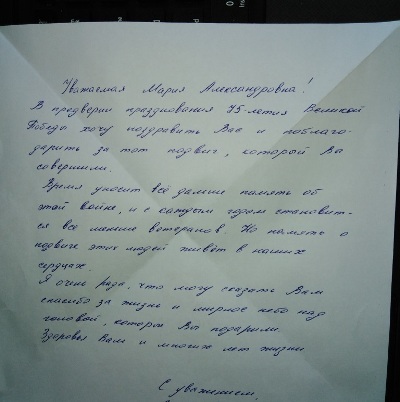 Уважаемая Мария Александровна!
В предверии празднования 75-летия Великой
Победы хочу поздравить Вас и поблаго-
дарить за тот подвиг, который Вы
совершили.
Время уносит всё дальше память об
этой войне, и с каждым годом становит-
ся все меньше ветеранов. Но память о
подвиге этих людей живёт в наших
сердцах.
Я очень рада, что могу сказать Вам
спасибо за жизнь и мирное небо над
головой, которые Вы подарили.
Здоровья Вам и многих лет жизни
С уважением,